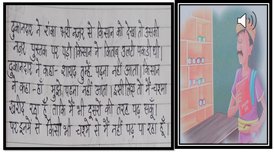 दुकानदार ने शंका भरी नजर से किसान को देखा तो उसकी
नजर पुस्तक पर पड़ी। किसान ने किताब उल्टी पकड़ी थी।
दुकानदार ने कहा- शायद तुम्हें पढ़ना नहीं आता। किसान
ने कहा-हाँ मुझे पढ़ना नहीं आता इसीलिए तो मैं चश्मा
खरीद रहा हूँ ताकि मैं भी दूसरों की तरह पढ़ सकूँ।
पर इनमें से किसी भी चश्मे से मैं नहीं पढ़ पा रहा हूँ।